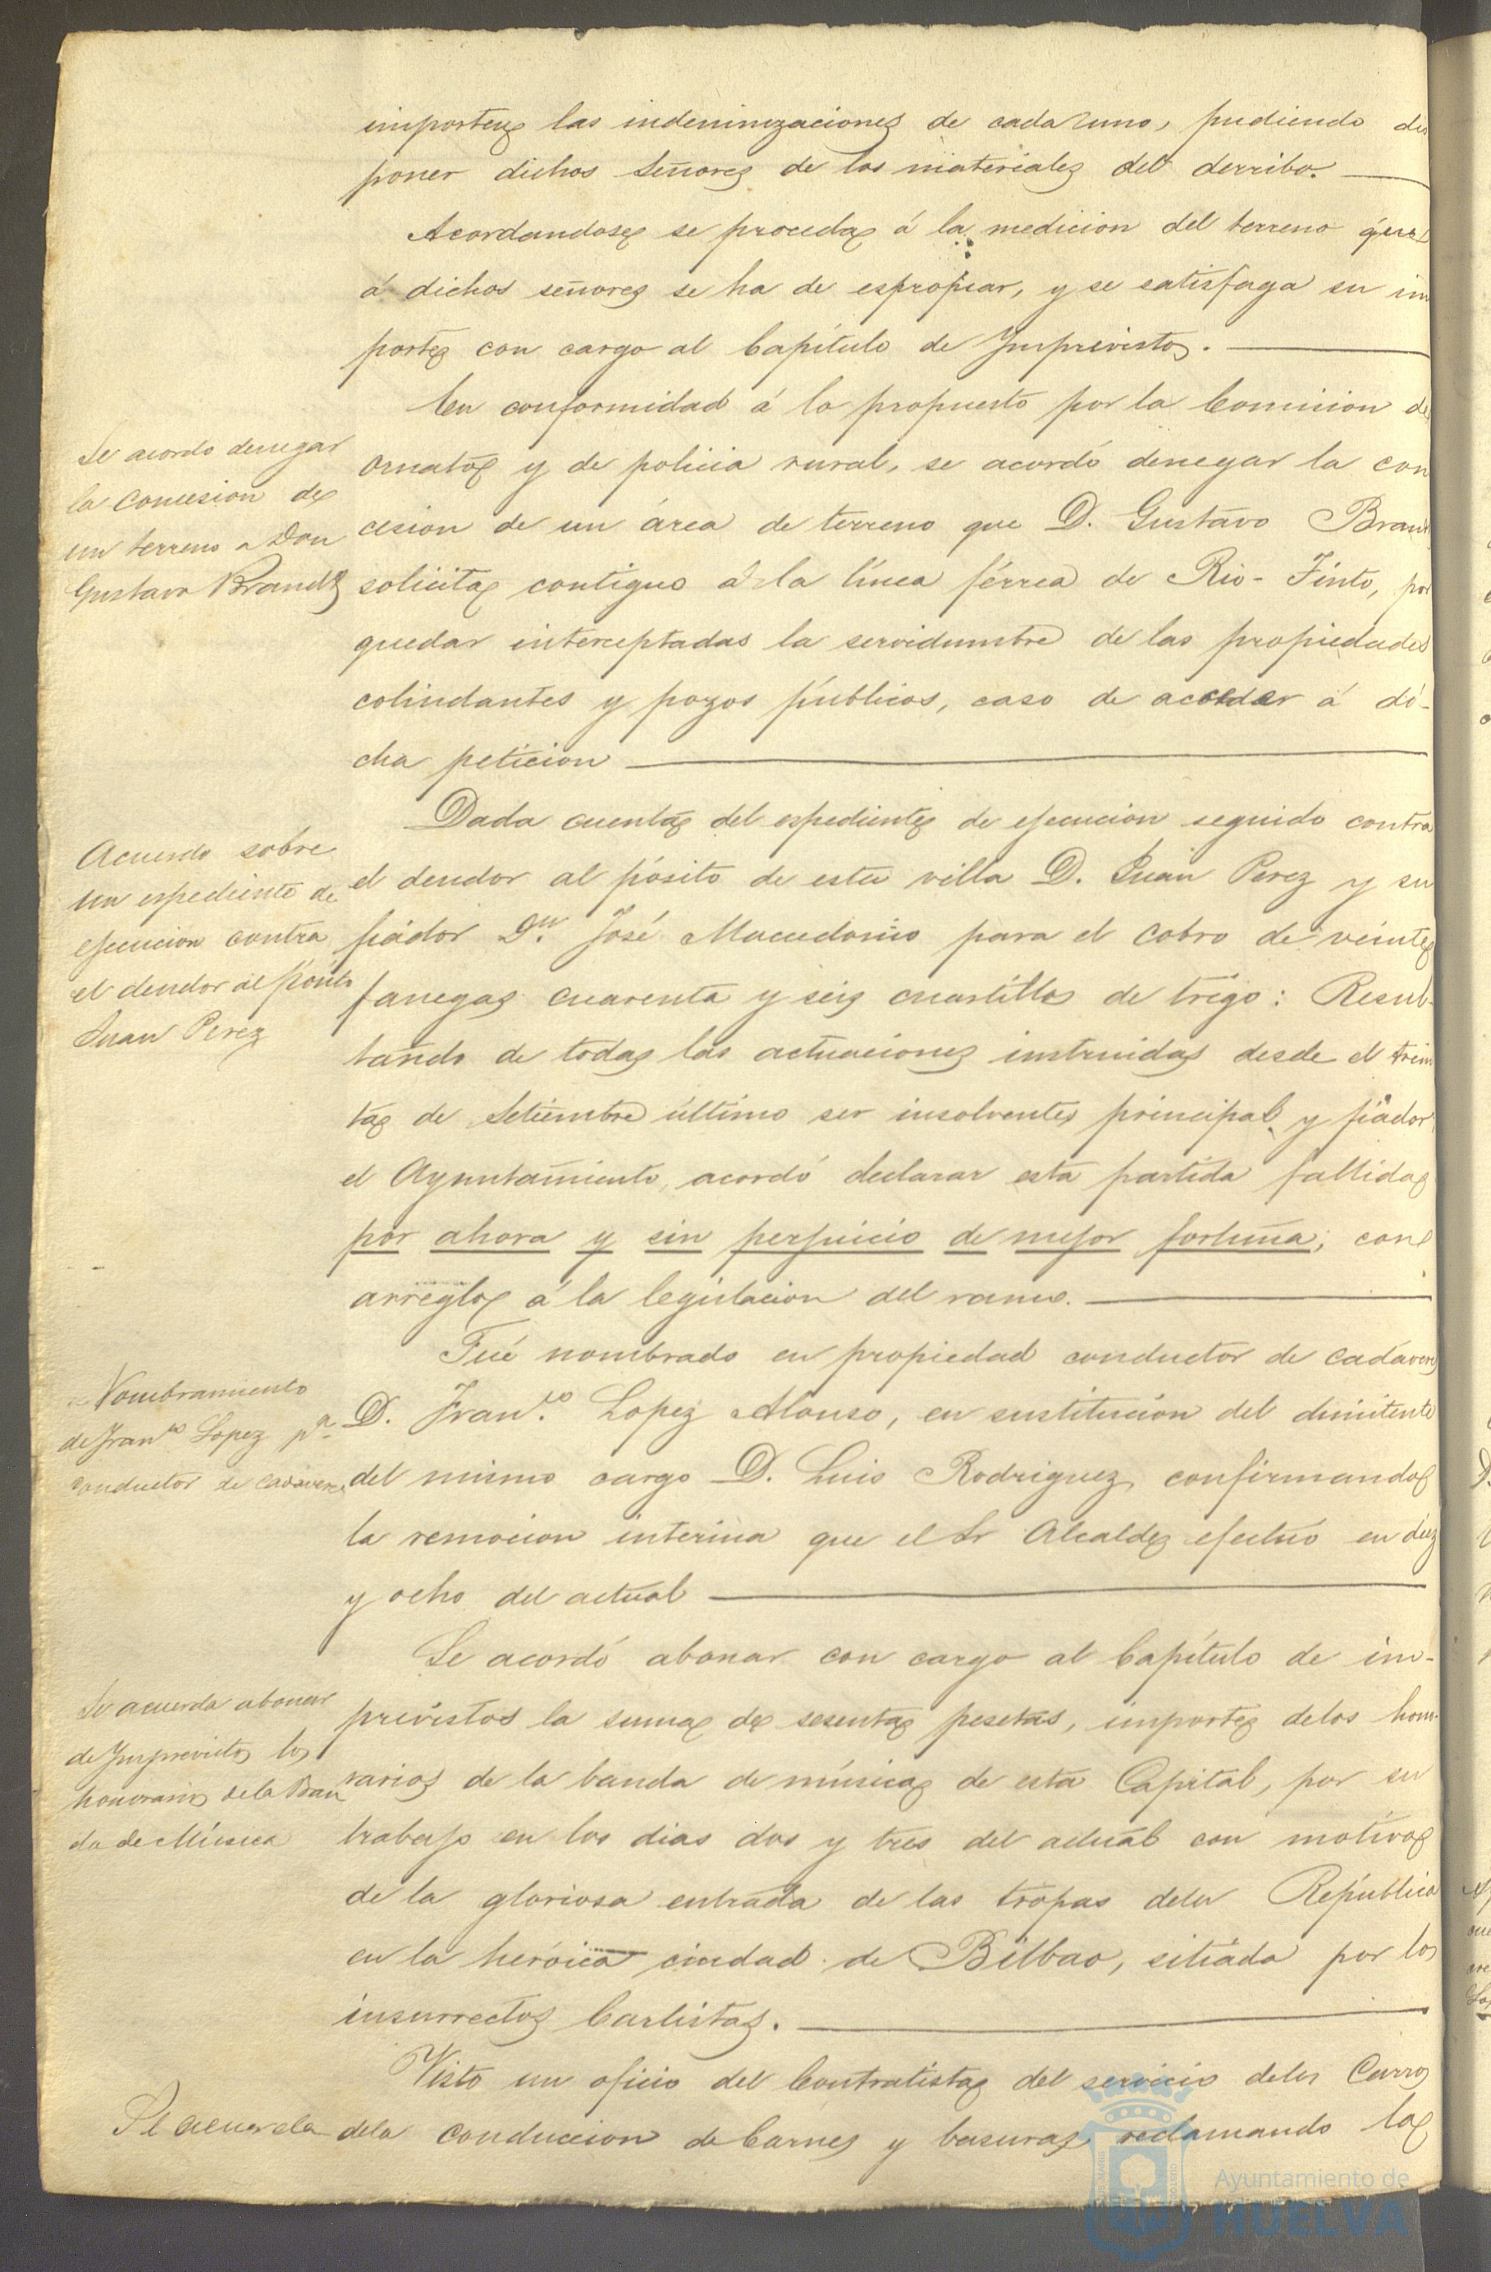 importen las indeminizaciones de cada uno, pudiendo dis
poner dichos Señores de los materiales del derribo.
Acordandose se proceda á la medicion del terreno que
á dichos señores se ha de espropiar, y se satisfaga su im
porte con cargo al Capítulo de Imprevistos.
En conformidad á lo propuesto por la Comision de
ornato y de policia rural, se acordó denegar la con
cesion de un área de terreno que D. Gustavo Brandt
solicita contiguo á la línea férrea de Rio-Tinto, por
quedar interceptadas la servidumbre de las propiedades
colindantes y pozos públicos, caso de acceder á di-
cha peticion
Se acordo denegar
la concesion de
un terreno a Don
Gustavo Brandt
Dada cuenta del espediente de ejecucion seguido contra
el deudor al pósito de esta villa D. Juan Perez y su
fiador Dn. José Macedonio para el cobro de veinte
fanegas cuarenta y seis cuartillos de trigo: Resul-
tando de todas las actuaciones instruidas desde el trein
ta de Setiembre último ser insolventes principal y fiador,
el Ayuntamiento, acordó declarar esta partida fallida
por ahora y sin perjuicio de mejor fortuna, con
arreglo á la legislacion del ramo.
Acuerdo sobre
un espediente de
ejecucion contra
el deudor al pósito
Juan Perez
Fué nombrado en propiedad conductor de cadaveres
D. Fran.co Lopez Alonso, en sustitucion del dimitente
del mismo cargo D. Luis Rodriguez, confirmando
la remocion interina que el Sr Alcalde efectuó en diez
y ocho del actual
Nombramiento
de Fran.co Lopez pa.
conductor de cadaveres
Se acordó abonar con cargo al Capítulo de im-
previstos la suma de sesenta pesetas, importe delos hono-
rarios de la banda de música de esta Capital, por su
trabajo en los dias dos y tres del actual con motivo
de la gloriosa entrada de las tropas dela República
en la heróica ciudad de Bilbao, sitiada por los
insurrectos Carlistas.
Se acuerda abonar
de Imprevistos los
honorarios dela Ban
da de Música
Visto un oficio del Contratista del servicio delos Carros
dela conduccion de Carnes y basuras, reclamando las
Se acuerda
Ayuntamiento de
HUELVA